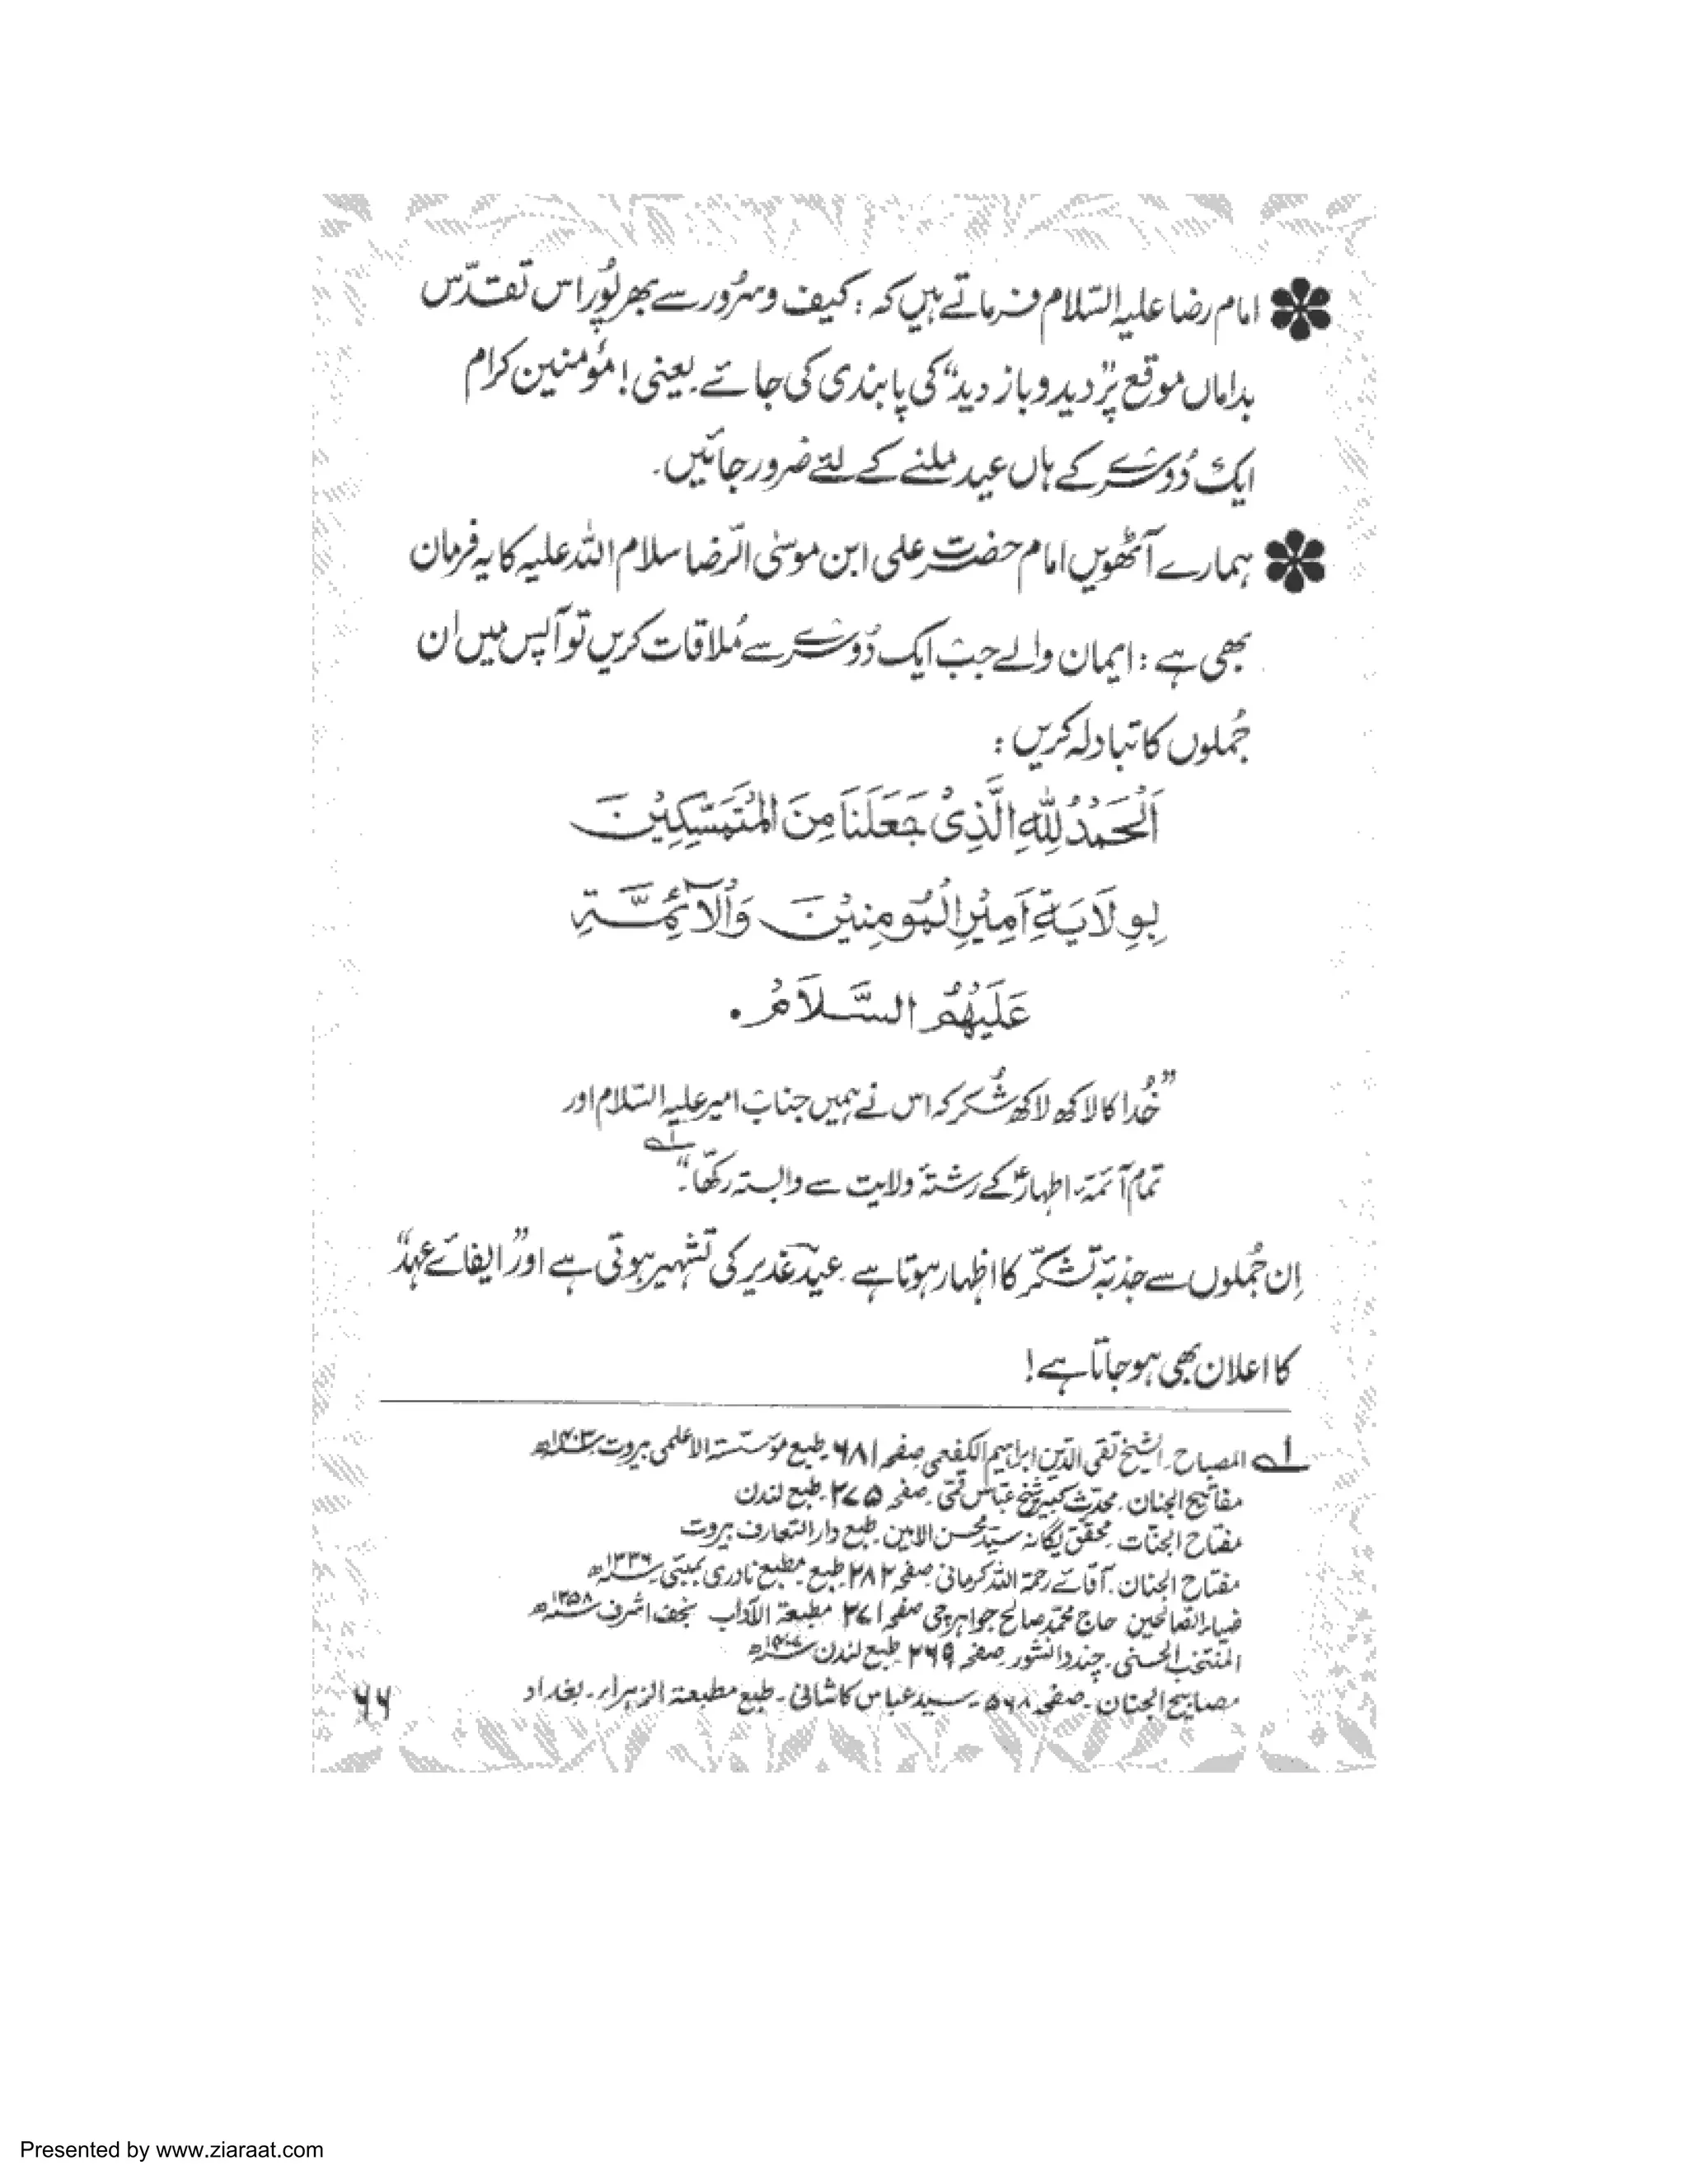 امام رضا علیہ السّلام فرماتے ہیں کہ : کیف و سُرُور سے بھرپُور اس تقدّس
بداماں موقع پر ”دید و باز دید“ کی پابندی کی جائے۔ یعنی ! مؤمنین کرام
ایک دُوسرے کے ہاں عید ملنے کے لئے ضرور جائیں۔
ہمارے آٹھویں امام حضرت علی ابن موسیٰ الرّضا سلام اللہ علیہ کا یہ فرمان
بھی ہے : ایمان والے جب ایک دُوسرے سے مُلاقات کریں تو آپس میں ان
جُملوں کا تبادلہ کریں :
اَلْحَمْدُ لِلّٰهِ الَّذِیْ جَعَلَنَا مِنَ الْمُتَمَسِّكِیْنَ
بِوِلَایَةِ اَمِیْرِ الْمُومِنِیْنَ وَالْاَئِمَّةِ
عَلَیْهِمُ السَّلَامُ.
”خُدا کا لاکھ لاکھ شُکر کہ اس نے ہمیں جناب امیر علیہ السّلام اور
تمام آئمّہ اطہارؑ کے رشتۂ ولایت سے وابستہ رکھّا۔“ ۱ے
اِن جُملوں سے جذبۂ تشکّر کا اظہار ہوتا ہے۔ عید غدیر کی تشہیر ہوتی ہے اور ”ایفائے عہد“
کا اعلان بھی ہو جاتا ہے !
۱ے المصباح۔ الشیخ تقی الدّین ابراہیم الکفعمی صفحہ ۶۸۱ طبع مؤسّستہ الاعلمی بیروت ۱۴۰۳ھ
مفاتیح الجنان۔ محدّث کبیر شیخ عبّاس قمّی۔ صفحہ ۲۷۵۔ طبع لندن
مفتاح الجنّات۔ محقّق یگانہ سیّد محسن الامین۔ طبع دار التعارف بیروت
مفتاح الجنان۔ آقائے رحمۃ اللہ کرمانی۔ صفحہ ۲۸۲ طبع۔ مطبع نادری بمبئی ۱۳۳۶ھ
ضیاء الصّالحین حاج محمّد صالح جواہرچی صفحہ ۲۷۱ مطبعۃ الآداب نجف اشرف ۱۳۵۸ھ
المنتخب الحسنی۔ چند دانشور۔ صفحہ ۲۶۹ طبع لندن
مصابیح الجنان۔ صفحہ ۵۶۸۔ سید عباس کاشانی۔ طبع مطبعۃ الزہراء۔ بغداد
۶۶
Presented by www.ziaraat.com